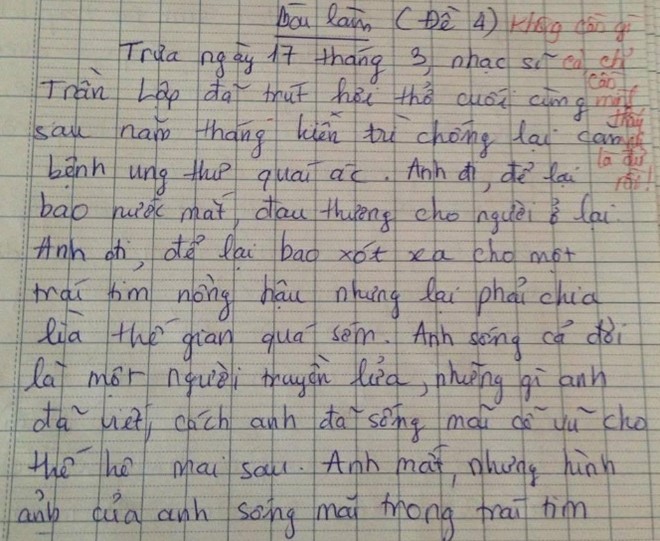 Bài làm (Đề 4)
Không cần gì
cả chỉ
cần
một
thấy
là đủ
rồi!
Trưa ngày 17 tháng 3, nhạc sĩ
Trần Lập đã trút hơi thở cuối cùng
sau năm tháng kiên trì chống lại căn
bệnh ung thư quái ác. Anh đi, để lại
bao nước mắt, đau thương cho người ở lại.
Anh đi, để lại bao xót xa cho một
trái tim nồng hậu nhưng lại phải chia
lìa thế gian quá sớm. Anh sống cả đời
là một người truyền lửa, những gì anh
đã viết, cách anh đã sống mãi cổ vũ cho
thế hệ mai sau. Anh mất, nhưng hình
ảnh của anh sống mãi trong trái tim